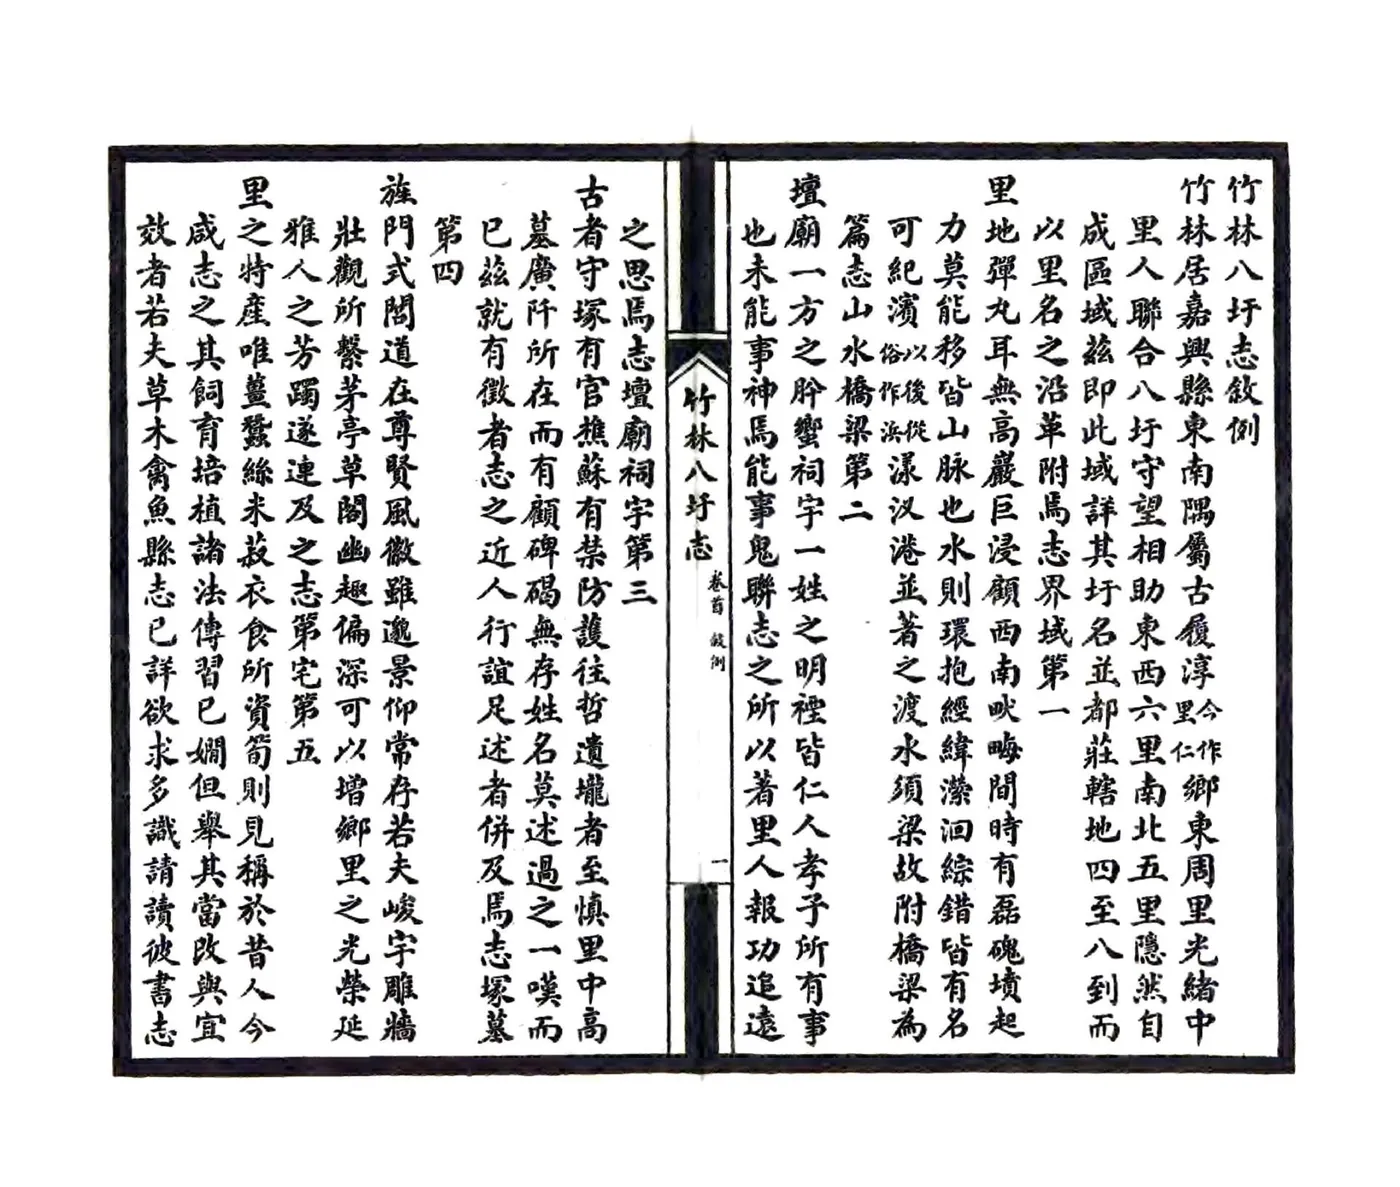 竹林八圩志敘例
竹林居嘉興縣東南隅屬古履淳今作里仁鄉東周里光緒中
里人聯合八圩守望相助東西六里南北五里隱然自
成區域茲即此域詳其圩名並都莊轄地四至八到而
以里名之沿革附焉志界域第一
里地彈丸耳無高巖巨浸顧西南畎畮間時有磊磈墳起
力莫能移皆山脉也水則環抱經緯瀠洄綜錯皆有名
可紀濱以後從俗作浜漾汊港並著之渡水須梁故附橋梁為
篇志山水橋梁第二
壇廟一方之肸蠁祠宇一姓之明禋皆仁人孝子所有事
也未能事神焉能事鬼聯志之所以著里人報功追遠
竹林八圩志
卷首 敘例
一
之思焉志壇廟祠宇第三
古者守塚有官樵蘇有禁防護往哲遺壠者至慎里中高
墓廣阡所在而有顧碑碣無存姓名莫述過之一嘆而
已茲就有徵者志之近人行誼足述者併及焉志塚墓
第四
旌門式閭道在尊賢風徽雖邈景仰常存若夫峻宇雕牆
壯觀所繫茅亭草閣幽趣偏深可以增鄉里之光榮延
雅人之芳躅遂連及之志第宅第五
里之特產唯薑蠶絲米菽衣食所資筍則見稱於昔人今
咸志之其飼育培植諸法傳習已嫺但舉其當改與宜
效者若夫草木禽魚縣志已詳欲求多識請讀彼書志